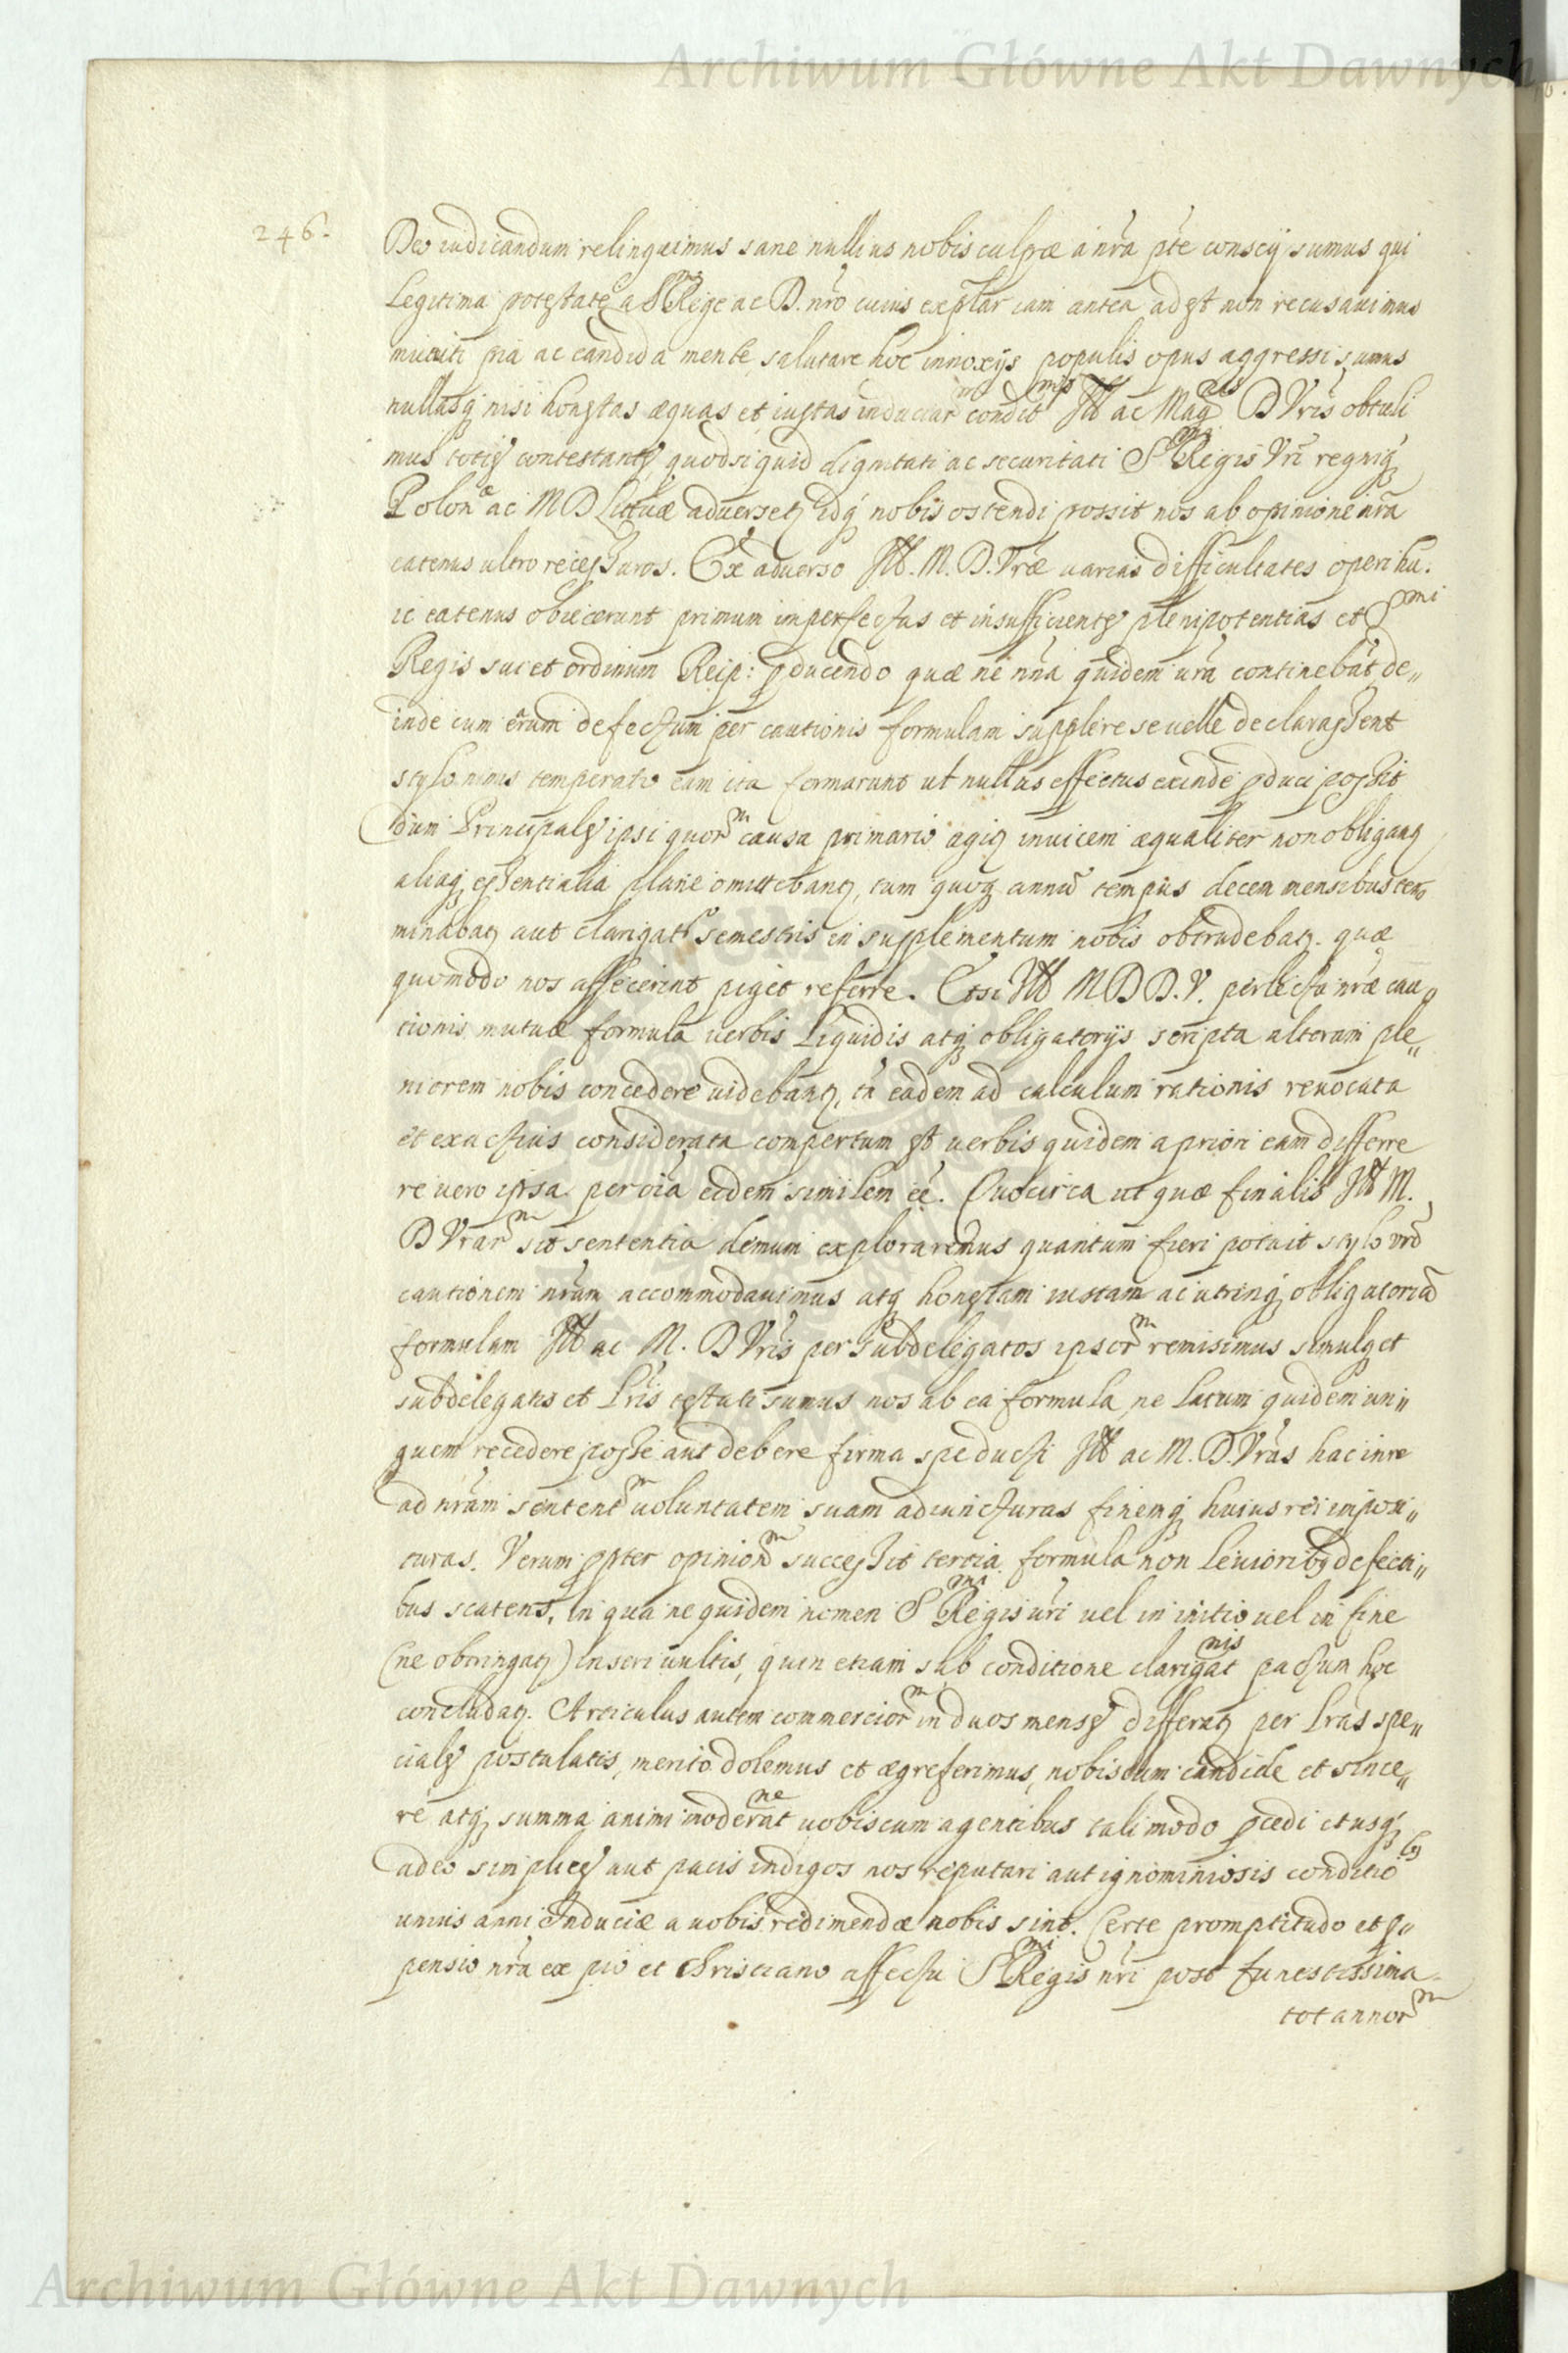 Archiwum Główne Akt Dawnych
246.
Deo iudicandum relinquimus sane nullius nobis culpæ a nrã pte conscij sumus qui
Legitima potestate a S Rege ac D. nrõ cuius explar iam antea adest non recusauimus
muniti pia ac candida mente, salutare hoc innoxijs populis opus aggressi sumus
nullasq nisi honestas æquas et iustas induciar^m condit^nis Ill ac Mag^cis D Vrĩs obtuli
mus toties contestantes quodsi quid dignitati ac securitati S^mi Regis Vrĩ regniq
Polon^æ ac M D Lituæ adversetur idq nobis ostendi possit nos ab opinione nrã
eatenus ultro recessuros. Ex adverso Ill. M. D. Vræ uarias difficultates operi hu.
ic eatenus obiecerunt primum imperfectas et insufficientes plenipotentias et S^mi
Regis sui et ordinum Reip: pducendo quæ ne nña quidem urã continebãt, de„
inde cum eãrum defectum per cautionis formulam supplere se uelle declarassent
stylo nimis temperato eam ita formarunt ut nullus effectus exinde pduci possit
dum Principales ipsi quor^m causa primario agitur inuicem æqualiter non obligantur
aliaq essentialia plane omittebantur, tum quoq annuũ tempus decem mensibus ter„
minabatur aut clarigat^o semestris in supplementum nobis obtrudebatur. quæ
quomodo nos affecerint piget referre. Etsi Ill M D D. V. perlecta nræ cau„
tionis mutuæ formula uerbis Liquidis atq obligatorijs scripta alteram ple„
niorem nobis concedere uidebantur, tñ eadem ad calculum rationis reuocata
et exactius considerata compertum est uerbis quidem a priori eam differre
re uero ipsa per oia eidem similem eẽ. Quocirca ut quæ finalis Ill M.
D Vrar^m sit sententia demum exploraremus quantum fieri potuit stylo vrõ
cautionem nrãm accommodauimus atq honestam iustam ac utrinq obligatoriã
formulam Ill ac M. D Vrĩs per subdelegatos ipsor^m remisimus simulq et
subdelegatis et Lrĩs testati sumus nos ab ea formula ne latum quidem un„
guem recedere posse aut debere firma spe ducti Ill ac M. D. Vrãs hac in re
ad nrãm sentent^m uoluntatem suam adiuncturas finemq huius rei impori„
turas. Verum ppter opinion^m successit tertia formula non leuioribus defecti„
bus scatens, in qua ne quidem nomen S^mi Regis urĩ uel in initio uel in fine
(ne obstringatur) inseri uultis, quin etiam sub conditione clarigat^nis pactum hoc
concludatur. Articulus autem commercior^m in duos menses differatur per Lrãs spe„
ciales postulatis, merito dolemus et ægre ferimus, nobiscum candide et since„
re atq summa animi moderat^ne uobiscum agentibus tali modo pcedi et usq
adeo simplices aut pacis indigos nos reputari aut ignominiosis conditio^bus
unius anni Induciæ a uobis redimendæ nobis sint. Certe promptitudo et p„
pensio nrã ex pio et Christiano affectu S^mi Regis nrĩ post funestissima
tot annor^m
Archiwum Główne Akt Dawnych